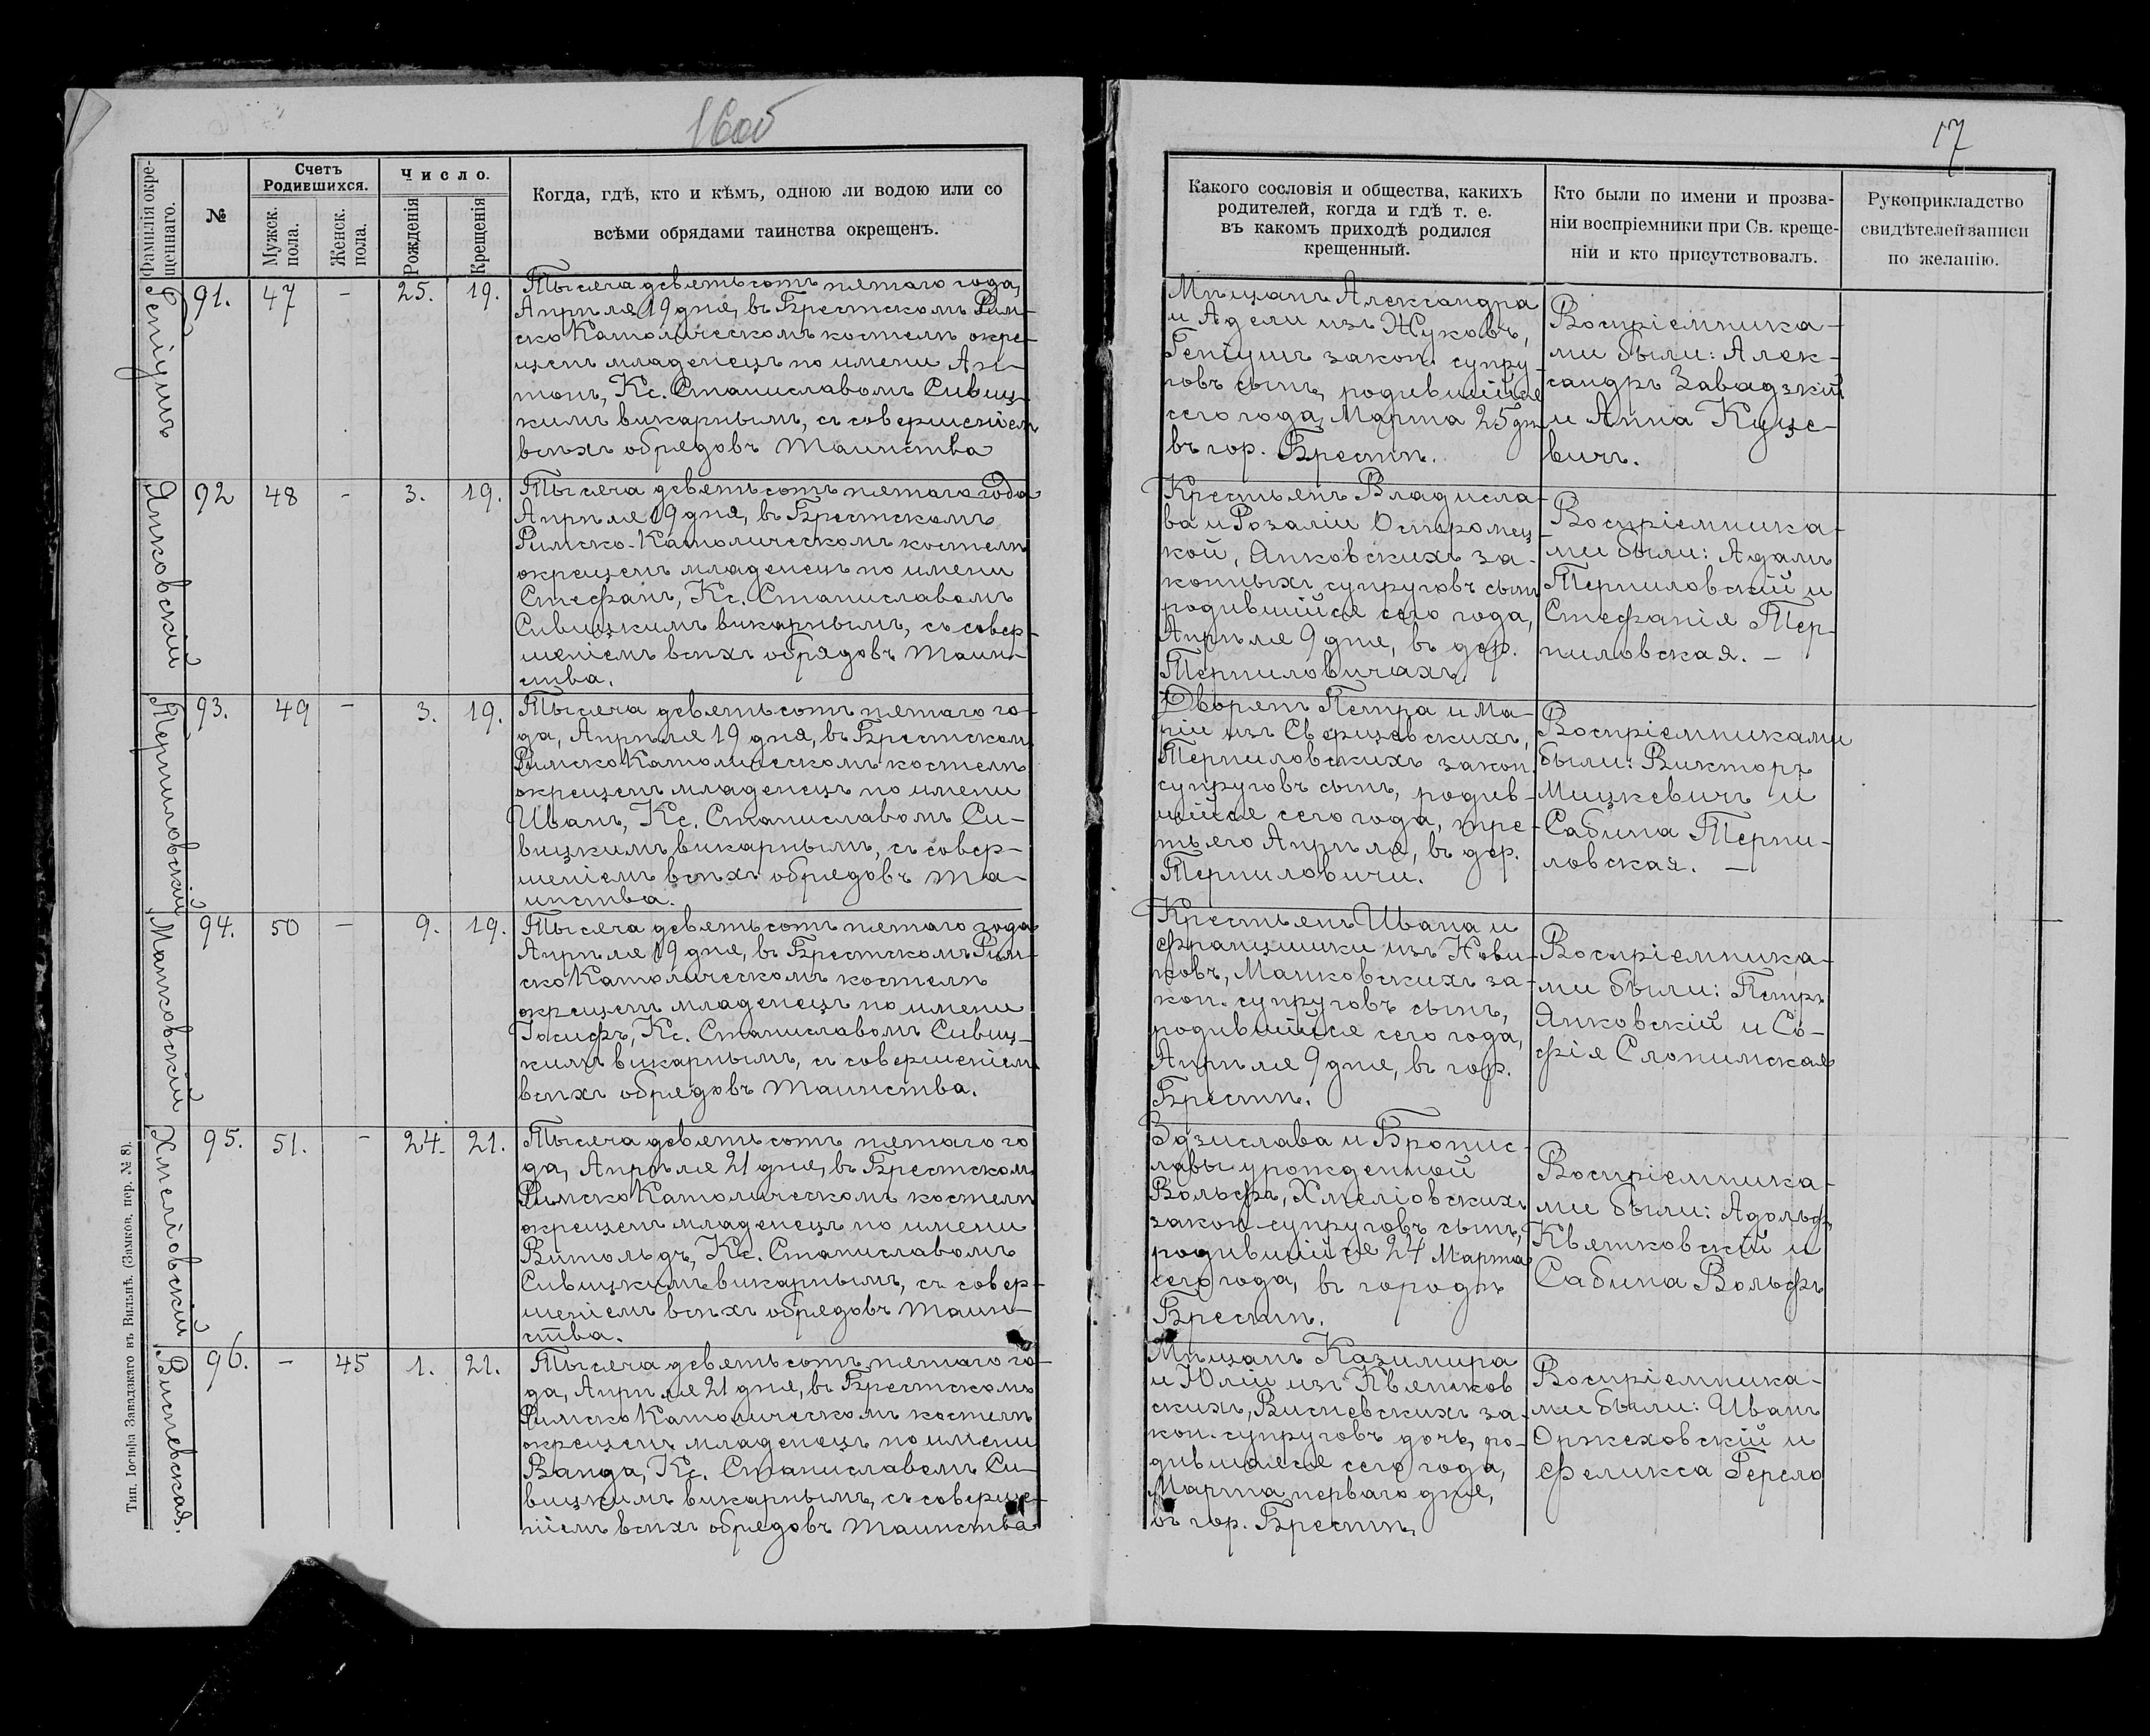 16об
17
Фамилія окре-
щеннаго.
№
Счетъ
Родившихся.
Мужск.
пола.
Женск.
пола.
Число.
Рожденія
Крещенія
Когда, гдѣ, кто и кѣмъ, одною ли водою или со
всѣми обрядами таинства окрещенъ.
Какого сословія и общества, какихъ
родителей, когда и гдѣ т. е.
въ какомъ приходѣ родился
крещенный.
Кто были по имени и прозва-
ніи воспріемники при Св. креще-
ніи и кто присутствовалъ.
Рукоприкладство
свидѣтелей записи
по желанію.
Геніушъ
91. 47 - 25. 19.
Тысяча девятьсотъ пятаго года,
Апрѣля 19 дня, въ Брестскомъ Рим-
ско Католическомъ костелѣ окре-
щенъ младенецъ по имени Ан-
тонъ, Кс. Станиславомъ Сивиц-
кимъ викарнымъ, съ совершеніемъ
всѣхъ обрядовъ Таинства
Мѣщанъ Александра
и Адели изъ Жуковъ,
Геніушъ закон. супру-
говъ сынъ, родившійся
сего года, Марта 25 дня
въ гор. Брестѣ.
Воспріемника-
ми были: Алек-
сандръ Завадзкій
и Анна Куце-
вичъ.
Янковскій
92 48 - 3. 19.
Тысяча девятьсотъ пятаго года
Апрѣля 19 дня, въ Брестскомъ
Римско-Католическомъ костелѣ
окрещенъ младенецъ по имени
Стефанъ, Кс. Станиславомъ
Сивицкимъ викарнымъ, съ совер-
шеніемъ всѣхъ обрядовъ Таин-
ства.
Крестьянъ Владисла-
ва и Розаліи Остромец-
кой, Янковскихъ за-
конныхъ супруговъ сынъ
родившійся сего года,
Апрѣля 9 дня, въ дер.
Терпиловичахъ.
Воспріемника-
ми были: Адамъ
Терпиловскій и
Стефанія Тер-
пиловская. -
Терпиловскій
93. 49 - 3. 19.
Тысяча девятьсотъ пятаго го-
да, Апрѣля 19 дня, въ Брестском
Римско Католическомъ костелѣ
окрещенъ младенецъ по имени
Иванъ, Кс. Станиславомъ Си-
вицкимъ викарнымъ, съ совер-
шеніемъ всѣхъ обрядовъ Та-
инства.
Дворянъ Петра и Ма-
ріи изъ Сверщевскихъ,
Терпиловскихъ закон.
супруговъ сынъ, родив-
шійся сего года, тре-
тьяго Апрѣля, въ дер.
Терпиловичи.
Воспріемниками
были: Викторъ
Мицкевичъ и
Сабина Терпи-
ловская. -
Манковскій
94. 50 - 9. 19.
Тысяча девятьсотъ пятаго года
Апрѣля 19 дня, въ Брестскомъ Рим-
ско Католическомъ костелѣ
окрещенъ младенецъ по имени
Іосифъ, Кс. Станиславомъ Сивиц-
кимъ викарнымъ, съ совершеніем
всѣхъ обрядовъ Таинства.
Крестьянъ Ивана и
Францишки изъ Нови-
ковъ, Манковскихъ за-
кон. супруговъ сынъ,
родившійся сего года,
Апрѣля 9 дня, въ гор.
Брестѣ.
Воспріемника-
ми были: Петръ
Янковскій и Со-
фія Слонимская
Хмеліовскій
95. 51. - 24. 21.
Тысяча девятьсотъ пятаго го
да, Апрѣля 21 дня, въ Брестском
Римско Католическомъ костелѣ
окрещенъ младенецъ по имени
Витольдъ, Кс. Станиславомъ
Сивицкимъ викарнымъ, съ совер-
шеніемъ всѣхъ обрядовъ Таин-
ства.
Здзислава и Бронис-
лавы урожденной
Вольфъ, Хмеліовскихъ
закон. супруговъ сынъ,
родившійся 24 Марта
сего года, въ городѣ
Брестѣ.
Воспріемника-
ми были: Адольфъ
Квятковскій и
Сабина Вольфъ
Висневская.
96. - 45 1. 21.
Тысяча девятьсотъ пятаго го-
да, Апрѣля 21 дня, въ Брестскомъ
Римско Католическомъ костелѣ
окрещенъ младенецъ по имени
Ванда, Кс. Станиславомъ Си-
вицкимъ викарнымъ, съ соверше-
ніемъ всѣхъ обрядовъ Таинства.
Мѣщанъ Казимира
и Юліи изъ Квятков
скихъ, Висневскихъ за-
кон. супруговъ дочь, ро-
дившаяся сего года,
Марта перваго дня,
въ гор. Брестѣ.
Воспріемника-
ми были: Иванъ
Оржеховскій и
Феликса Герсло
Тип. Іосифа Завадзкаго въ Вильнѣ. (Замков. пер. № 8).